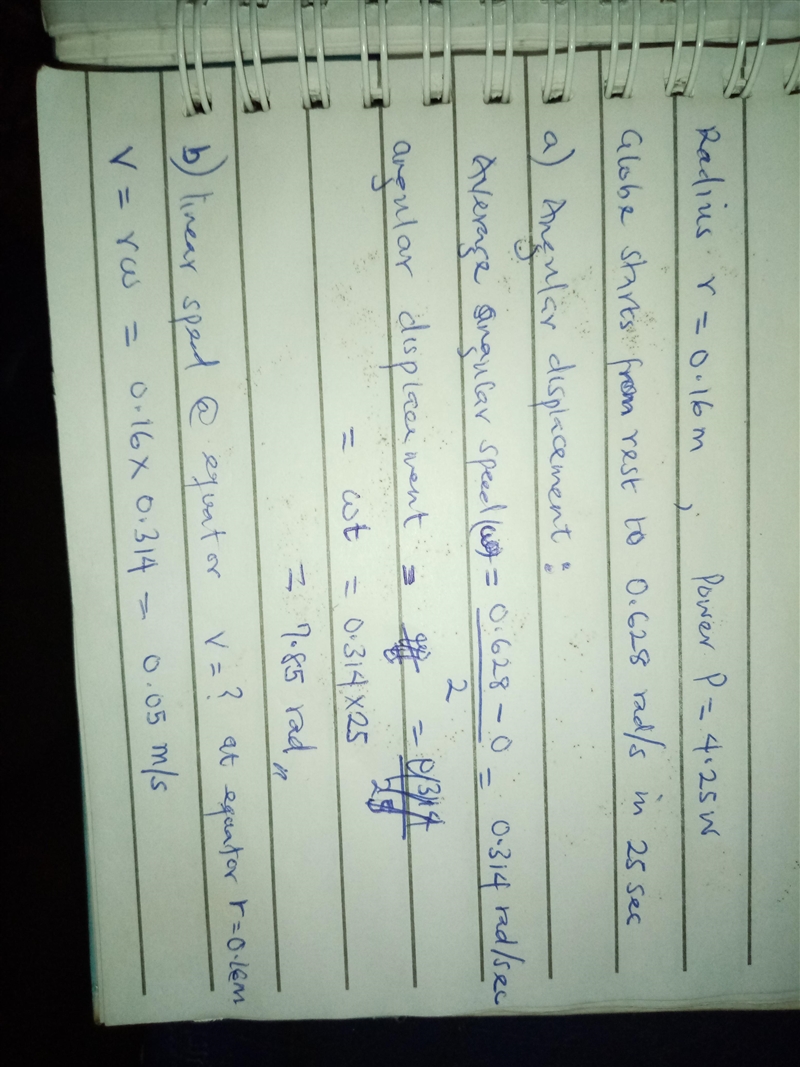 Radius r = 0.16m , Power P = 4.25W
Globe starts from rest to 0.628 rad/s in 25 sec
a) Angular displacement:
Average angular speed(ω) = 0.628 - 0 / 2 = 0.314 rad/sec
angular displacement = =
= ωt = 0.314 x 25
= 7.85 rad
b) linear speed @ equator v = ? at equator r = 0.16m
V = rω = 0.16 x 0.314 = 0.05 m/s